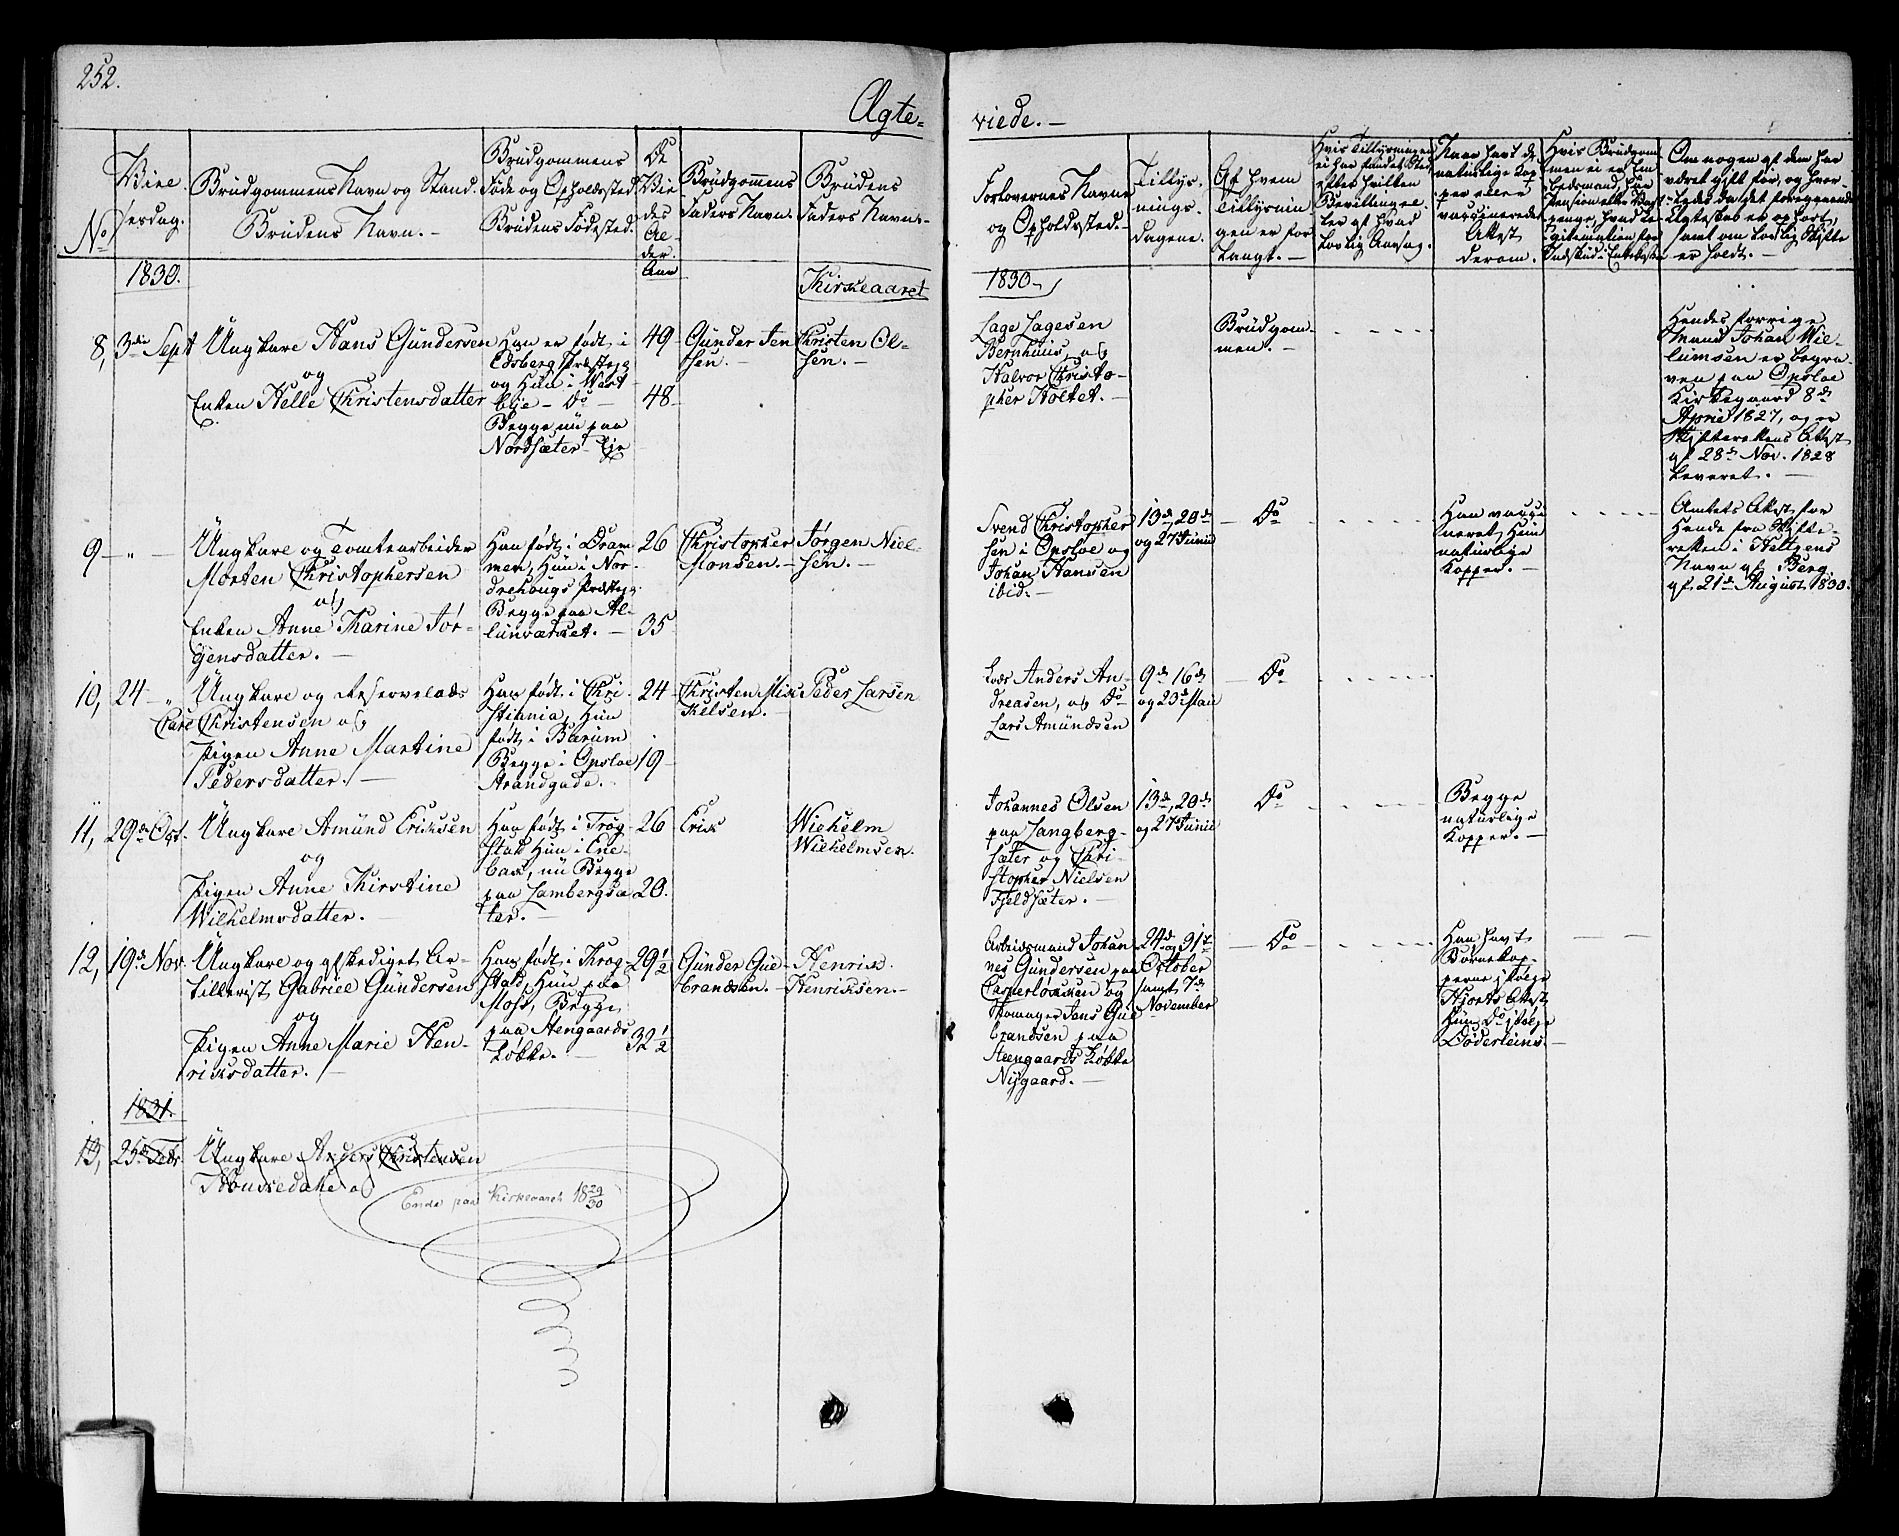 252.
Ægte-
viede.-
No
Vielsesdag.
Brudgommens Navn og Stand.
Brudens Navn.-
Brudgommens
Føde og Opholdssted
Brudens Fødested.
De
Vie
des
Al-
der.
Aar
Brudgommens
Faders Navn.
Brudens
Faders Navn.-
Forlovernes Navne
og Opholdssted-
Tillys-
nings-
dagene.
Af hvem
Tillysnin
gen er for
langt.-
Hvis Tillysningen
ei har fundet Sted
efter hvilken
Bevilling el
ler af hvad
lovlig Aarsag.
Naar havt de
naturlige Kop
per eller
vaccinerede
Attest
derom.
Hvis Brudgom
men ei er Em
bedsmand, har
Om nogen af dem har
været gift før, og hvor-
ledes da det foregaaende
Ægteskab er ophørt,
samt om lovlig Skifte
er holdt.-
1830.
Kirkeaaret
1830-
8, 3die Sept
Ungkarl Hans Gundersen
og
Enken Helle Christensdatter
Han er født i
Edsberg Præstegj
og Hun i West
bye - Do -
Begge nu paa
Nordsæter Eje
49-
48-
Gunder Jen
sen.-
Christen Ol-
sen.-
Lage Lagesen
Bernhuus, og
Halvor Christo-
pher Holtet.-
Brudgom-
men.-
Hendes forrige
Mand Johan Wil-
lumsen er begra-
ven paa Opsloe
Kirkegaard 8de
April 1827, og er
Skifterettens Attest
af 28de Nov. 1828
leveret.-
9 - " -
Ungkarl og Tomtearbeider
Morten Christophersen
og
Enken Anne Karine Jør-
gensdatter.-
Han født i Dram
men, Hun i Nor-
drehougs Præstegj.
Begge paa Al-
lunværket.-
26
35
Christopher
Monsen.-
Jørgen Niel-
sen.-
Svend Christopher
sen i Opsloe og
Johan Hansen
ibid.-
13de, 20de
og 27 Junii
- Do
Han vacci
neret, Hun
naturlige
Kopper.-
Amtets Attest for
Hende fra Skifte-
retten i Heltzens
Navn af Berg
af 21de August 1830.
10, 24 - "
Ungkarl og Reservelods
Carl Christensen og
Pigen Anne Martine
Pedersdatter.-
Han født i Chri-
stiania, Hun
født i Bærum
Begge i Opsloe
Strandgade.
24
19
Christen Mik
kelsen.-
Peder Larsen
Lods Anders An-
dreasen, og Do
Lars Amundsen
9de 16de
og 23de Mai
- Do
11, 29de Oct.
Ungkarl Amund Ericksen
og
Pigen Anne Kirstine
Wilhelmsdatter.-
Han født i Trøg-
stad Hun i Ene-
bak, nu Begge
paa Lambergsæ
ter.-
26
20.
Erick
Wilhelm
Wilhelmsen.
Johannes Olsen
paa Langberg-
sæter og Chri-
stopher Nielsen
Fjeldsæter.-
13de, 20de
og 27 Junii
Do
Begge
naturlige
Kopper.-
12, 19de Nov.
Ungkarl og afskediget Ar-
tillerist Gabriel Gundersen
og
Pigen Anne Marie Hen-
riksdatter.-
Han født i Krog-
stad, Hun paa
Moss, Begge
paa Stengaards
Løkke.-
29 1/2
32 1/2
Gunder Gul-
brandsen.-
Henrik
Henriksen.-
Arbeidsmand Johan
nes Gundersen paa
Casperløkken og
Skomager Jens Gul
brandsen paa
Steengaards Løkke
Nygaard.-
24de og 31te
October
samt 7de
November
- Do -
Han havt
Børnekop-
perne ifølge
Hjorts Attest
Hun Do ifølge
Döderleins.-
1831.
13, 25de Febr
Ungkarl Anders Christensen
og
Ende paa Kirkeaaret 18 29/30